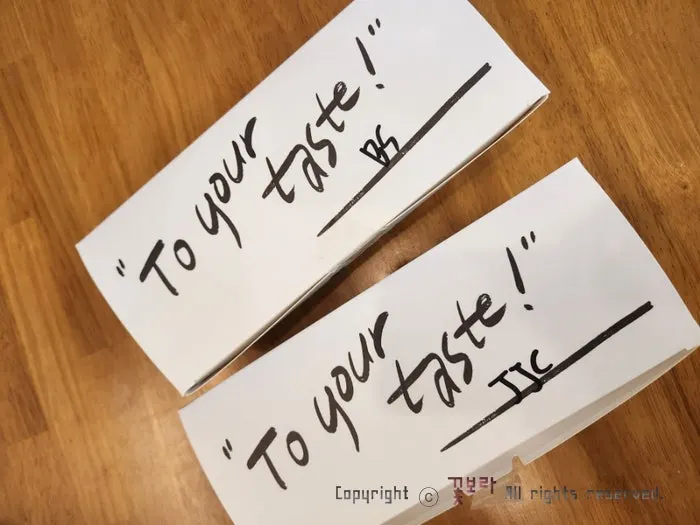 "To your
taste!"
BS
"To your
taste!"
JJC
Copyright ⓒ 꽃보라 All rights reserved.